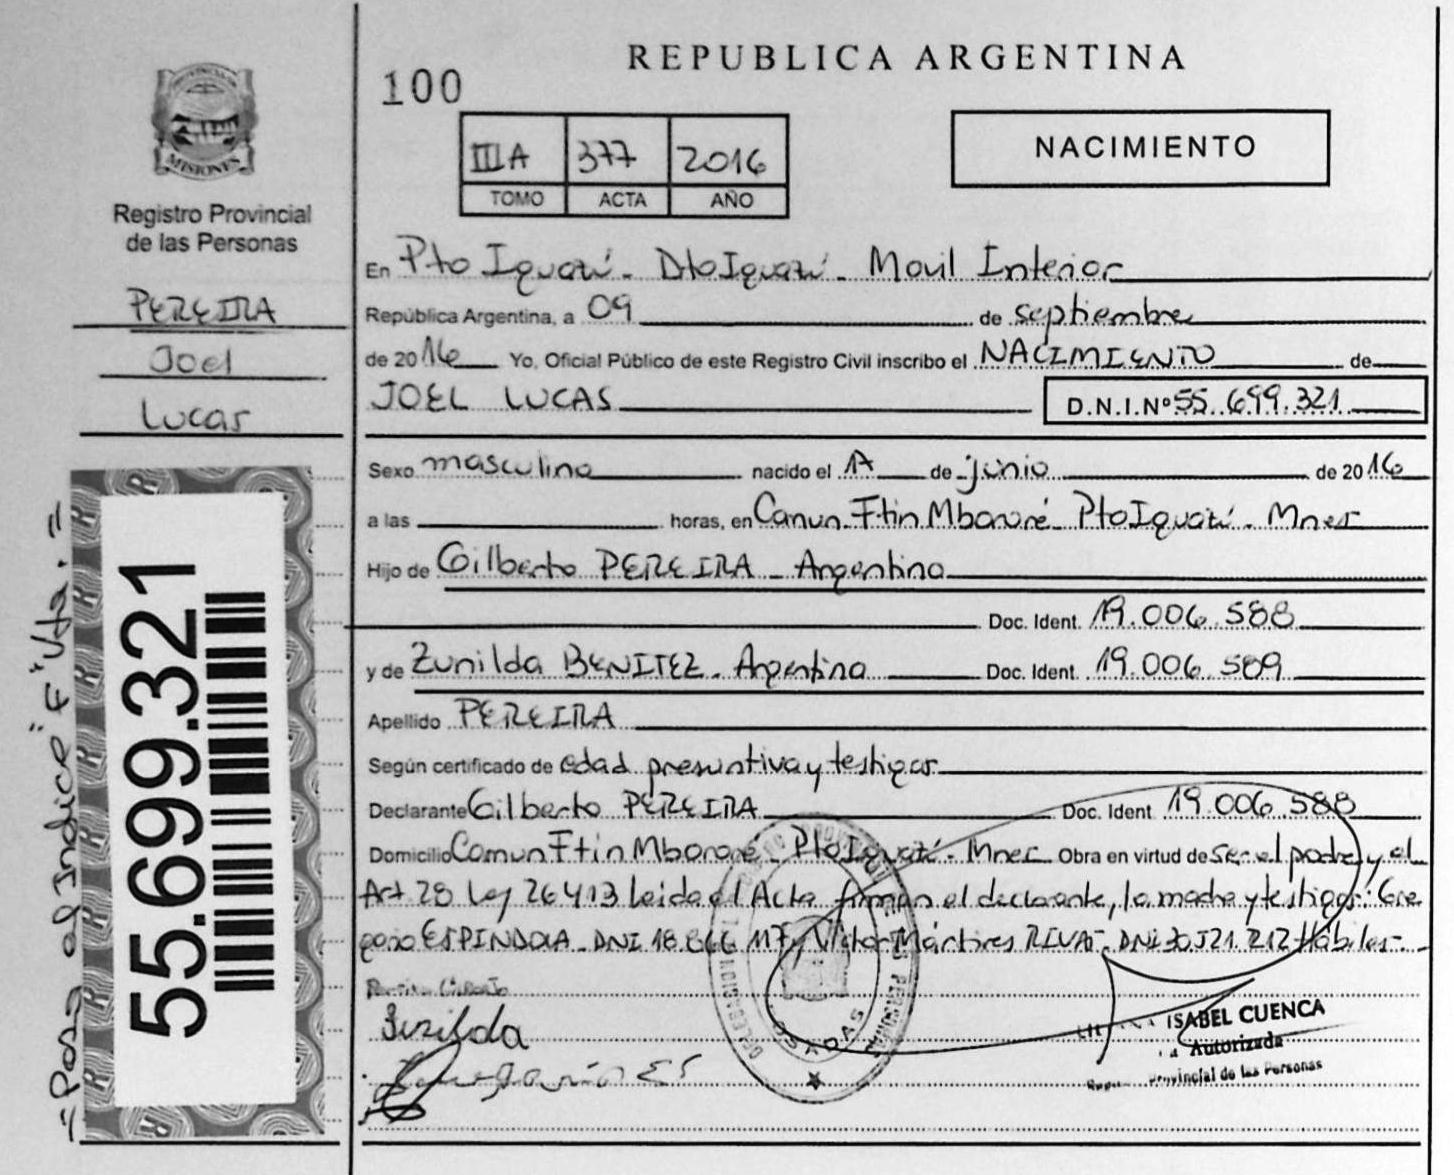 REPUBLICA ARGENTINA
100
MISIONES
Registro Provincial
de las Personas
PEREIRA
Joel
Lucas
IIIA 377 2016
TOMO ACTA AÑO
NACIMIENTO
En Pto Iguazú - Dto Iguazú - Movil Interior
República Argentina, a 09 de septiembre
de 2016 Yo, Oficial Público de este Registro Civil inscribo el NACIMIENTO de
JOEL LUCAS D.N.I.Nº 55.699.321
Sexo masculino nacido el 17 de junio de 2016
a las horas, en Comun. Ftin Mbororé Pto Iguazú - Mnes
Hijo de Gilberto PEREIRA - Argentino
Doc. Ident. 19.006.588
y de Zunilda BENITEZ - Argentina Doc. Ident. 19.006.589
Apellido PEREIRA
Según certificado de edad presuntiva y testigos
Declarante Gilberto PEREIRA Doc. Ident 19.006.588
Domicilio Comun Ftin Mbororé - Pto Iguazú - Mnes Obra en virtud de ser el padre y el
Art 28 Ley 26413 leida el Acta firman el declarante, la madre y testigos: Gre
gorio ESPINDOLA - DNI 18.866 117 y Victor Mártires RIVA - DNI 30.521.212 Hábiles -
POSADAS
ISABEL CUENCA
Autorizada
Provincial de las Personas
55.699.321
= Pasa al Indice "F" Vta. =